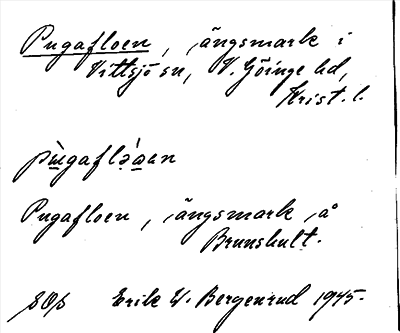 Pugafloen, ängsmark i
Vittsjö sn, V. Göinge hd,
Krist. l.
Pugafloen, ängsmark å
Brunshult.
SOS Erik W. Bergenrud 1945.